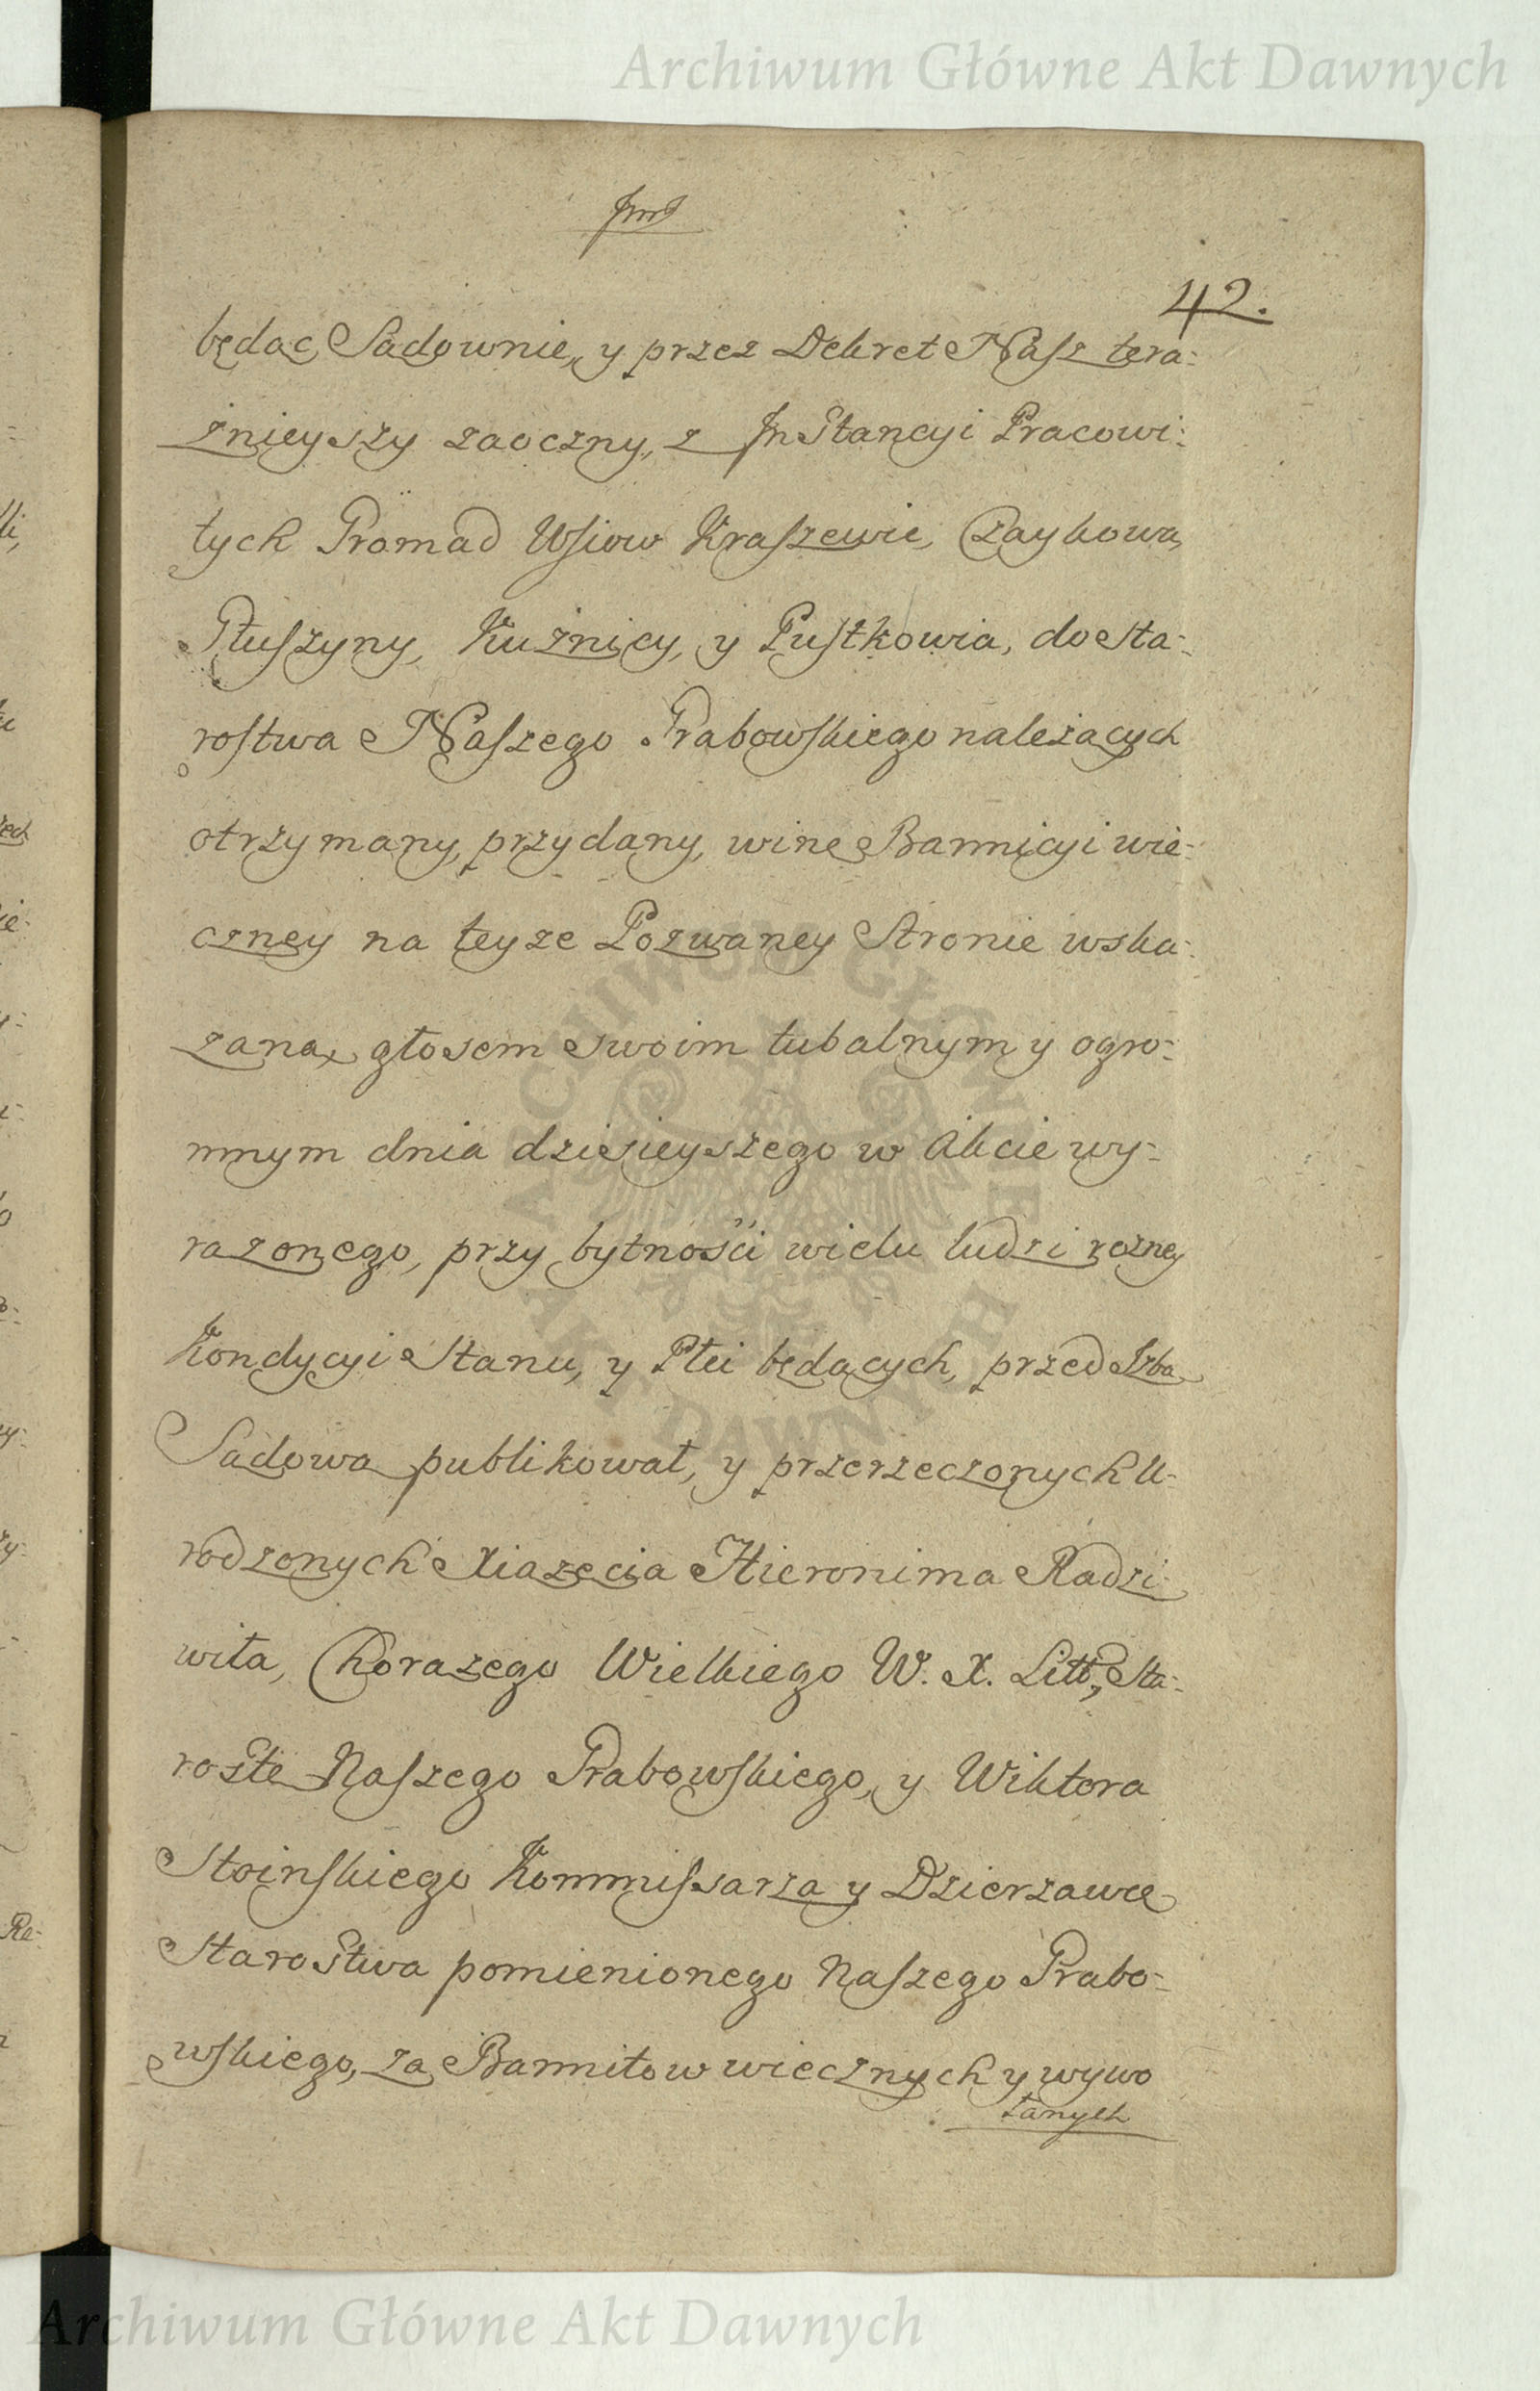 Archiwum Główne Akt Dawnych
42.
będąc Sądownie, y przez Dekret Nasz tera-
żnieyszy zaoczny, z JnStancyi Pracowi-
tych Gromad Wsiow Kraszewic, Czaykowa,
Głuszyny, Kuźnicy, y Pustkowia, do Sta-
rostwa Naszego Grabowskiego należących
otrzymany, przydany, winę Bannicyi wie-
czney na teyze Pozwaney Stronie wska-
zaną, głosem swoim tubalnym y ogro-
mnym dnia dzisieyszego w Akcie wy-
razonego, przy bytności wielu ludzi rozney
Kondycyi Stanu, y Płci będących, przed Izbą
Sądową publikował, y przerzeczonych U-
rodzonych Xiązęcia Hieronima Radzi-
wiła, Chorązego Wielkiego W. X. Litt, Sta-
rostę Naszego Grabowskiego, y Wiktora
Stoinskiego Kommissarza y Dzierzawcę
Starostwa pomienionego Naszego Grabo-
wskiego, za Bannitow wiecznych y wywo
łanych
ARCHIWUM GŁÓWNE AKT DAWNYCH
Archiwum Główne Akt Dawnych